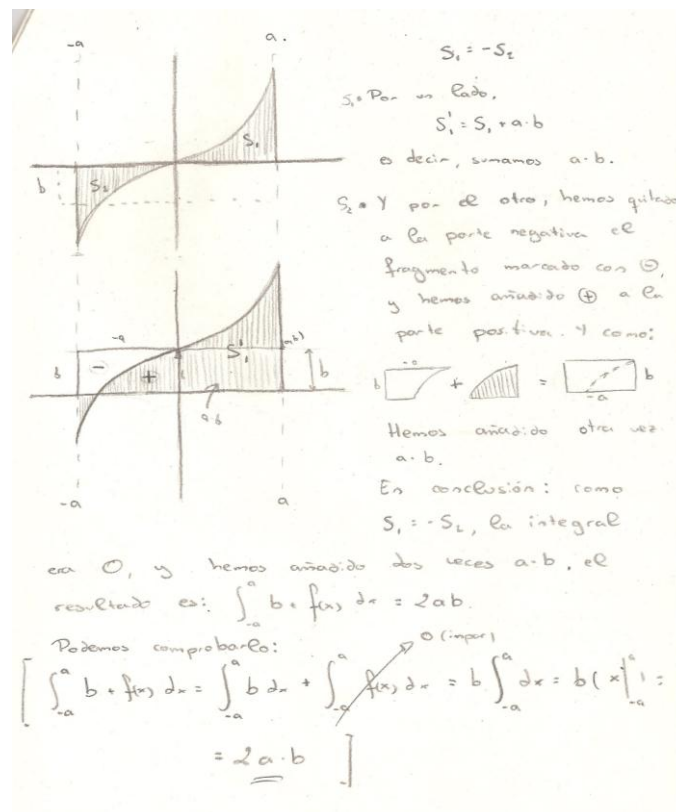 -a a.
S₁ = -S₂
S₁• Por un lado,
S₁' = S₁ + a·b
S₁
es decir, sumamos a·b.
b S₂
S₂• Y por el otro, hemos quitado
a la parte negativa el
fragmento marcado con ⊖,
y hemos añadido ⊕ a la
parte positiva. Y como:
-a S₁' (a,b)
b - + b
a·b
-a
b + = b
-a
Hemos añadido otra vez
a·b.
-a a
En conclusión: como
S₁ = -S₂, la integral
era 0, y hemos añadido dos veces a·b, el
resultado es: ∫₋ₐᵃ b + f(x) dx = 2ab.
Podemos comprobarlo:
0 (impar)
[ ∫₋ₐᵃ b + f(x) dx = ∫₋ₐᵃ b dx + ∫₋ₐᵃ f(x) dx = b ∫₋ₐᵃ dx = b ( x |₋ₐᵃ ) =
= 2a·b ]